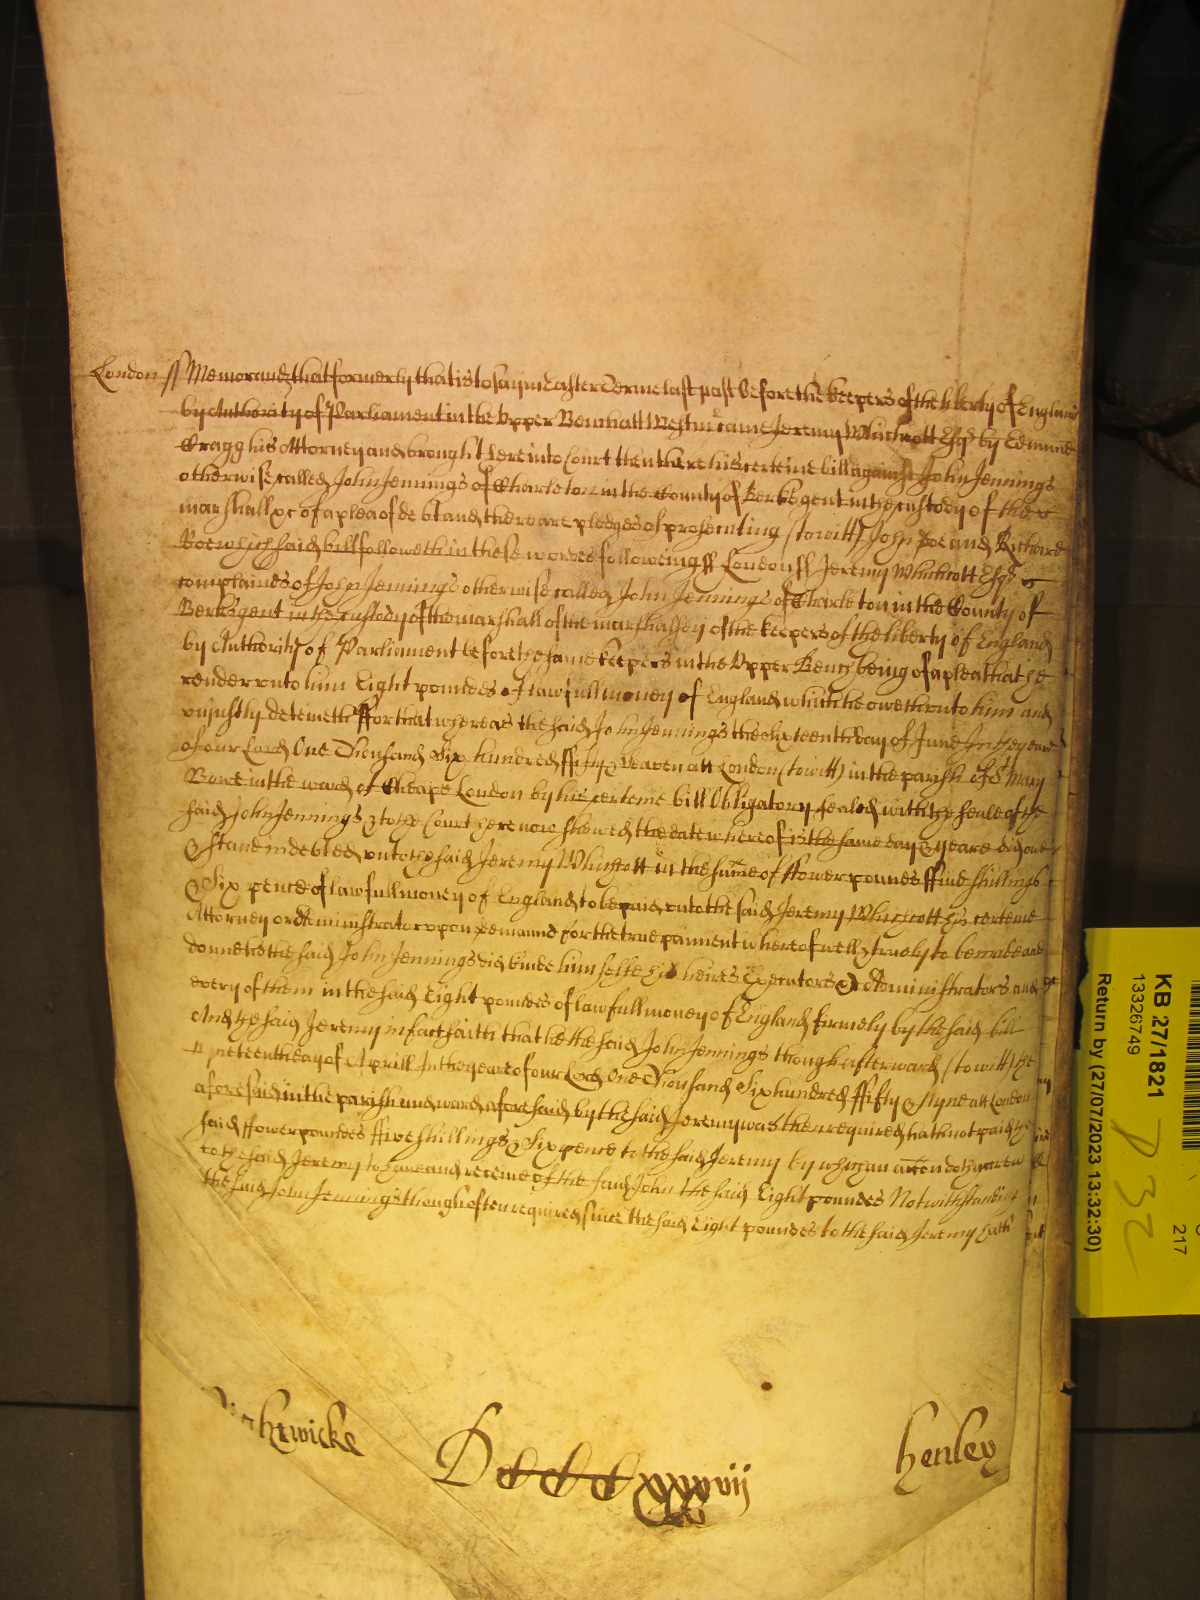 London ss Memorand that formerly that is to say in Easter Terme last past before the keepers of the liberty of England
by Authority of Parliament in the Upper Bench att Westmr came Jeremy Whichcott Esqr by Edmund
Cragg his Attorney and brought here into Court then there his certeine bill against John Jennings
otherwise called John Jennings of Charleton in the County of Berks gent in the custody of the
marshall &c of a plea of debt and there are pledges of prosecuting (to witt) John Doe and Richard
Roe which said bill followeth in these wordes followeing ss London ss Jeremy Whichcott Esqr
complaines of John Jennings otherwise called John Jennings of Charleton in the County of
Berks gent in the custody of the marshall of the marshalsey of the keepers of the liberty of England
by Authority of Parliament before the same keepers in the Upper Bench being of a plea that he
render unto him Eight poundes of lawfull money of England which he oweth unto him and
uniustly deteineth ffor that whereas the said John Jennings the sixteenth day of June In the yeare
of our Lord One Thousand Six hundred ffifty & Seaven att London (to witt) in the parish of St Mary
Bowe in the ward of Cheape London by his certeine bill Obligatory sealed with the seale of the
said John Jennings & to the Court here now shewed the date whereof is the same day & yeare did owe
& stand indebted unto the said Jeremy Whichcott in the sume of ffower poundes ffive shillings
& Six pence of lawfull money of England to be paid unto the said Jeremy Whichcott his certeine
Attorney or Administrator upon demaund for the true paiment whereof well & truely to be made and
donne he the said John Jennings did binde himselfe his heires Executors & Administrators and
every of them in the said Eight poundes of lawfull money of England firmely by the said bill
And the said Jeremy in fact saith that he the said John Jennings though afterward (to witt) the
Nyneteenth day of Aprill In the yeare of our Lord One Thousand Six hundred ffifty & Nyne att London
aforesaid in the parish and ward aforesaid by the said Jeremy was then required hath not paid the
said ffower poundes ffive shillings & Six pence to the said Jeremy by which an accon doth accrew
to the said Jeremy to have and receive of the said John the said Eight poundes Notwithstanding
the said John Jennings though often required since the said Eight poundes to the said Jeremy hath
htwicke
D CCCC xxxvij
Henley
KB 27/1821
13326749
Return by (27/07/2023 13:32:30)
217
D 32